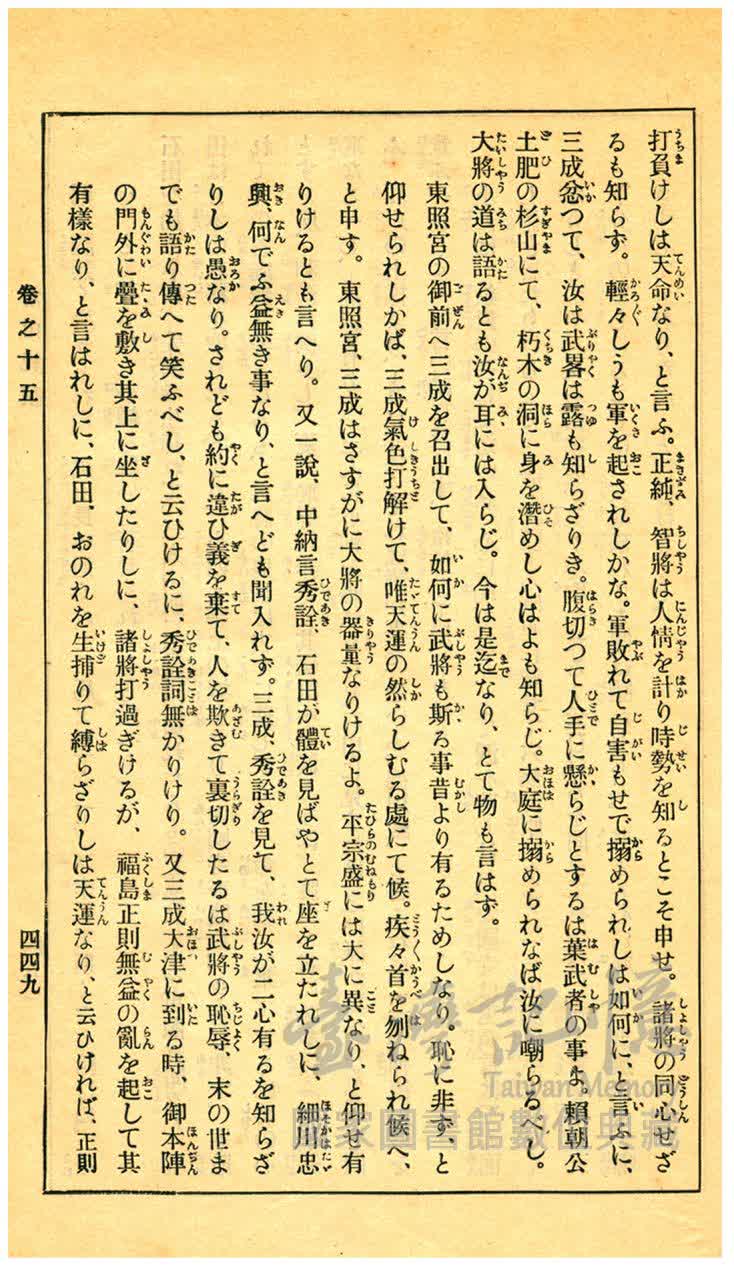 打負けしは天命なり、と言ふ。正純、智將は人情を計り時勢を知るとこそ申せ。諸將の同心せざ
るも知らず。輕々しうも軍を起されしかな。軍敗れて自害もせで搦められしは如何に、と言ふに、
三成忿つて、汝は武畧は露も知らざりき。腹切つて人手に懸らじとするは葉武者の事よ。賴朝公
土肥の杉山にて、朽木の洞に身を潛めし心はよも知らじ。大庭に搦められなば汝に嘲らるべし。
大將の道は語るとも汝が耳には入らじ。今は是迄なり、とて物も言はず。
東照宮の御前へ三成を召出して、如何に武將も斯る事昔より有るためしなり。恥に非ず、と
仰せられしかば、三成氣色打解けて、唯天運の然らしむる處にて候。疾々首を刎ねられ候へ、
と申す。東照宮、三成はさすがに大將の器量なりけるよ。平宗盛には大に異なり、と仰せ有
りけるとも言へり。又一說、中納言秀詮、石田が體を見ばやとて座を立たれしに、細川忠
興、何でふ益無き事なり、と言へども聞入れず。三成、秀詮を見て、我汝が二心有るを知らざ
りしは愚なり。されども約に違ひ義を棄て、人を欺きて裏切したるは武將の恥辱、末の世ま
でも語り傳へて笑ふべし、と云ひけるに、秀詮詞無かりけり。又三成大津に到る時、御本陣
の門外に疊を敷き其上に坐したりしに、諸將打過ぎけるが、福島正則無益の亂を起して其
有樣なり、と言はれしに、石田、おのれを生捕りて縛らざりしは天運なり、と云ひければ、正則
卷之十五
四四九
臺灣記憶
Taiwan Memory
國家圖書館數位典藏